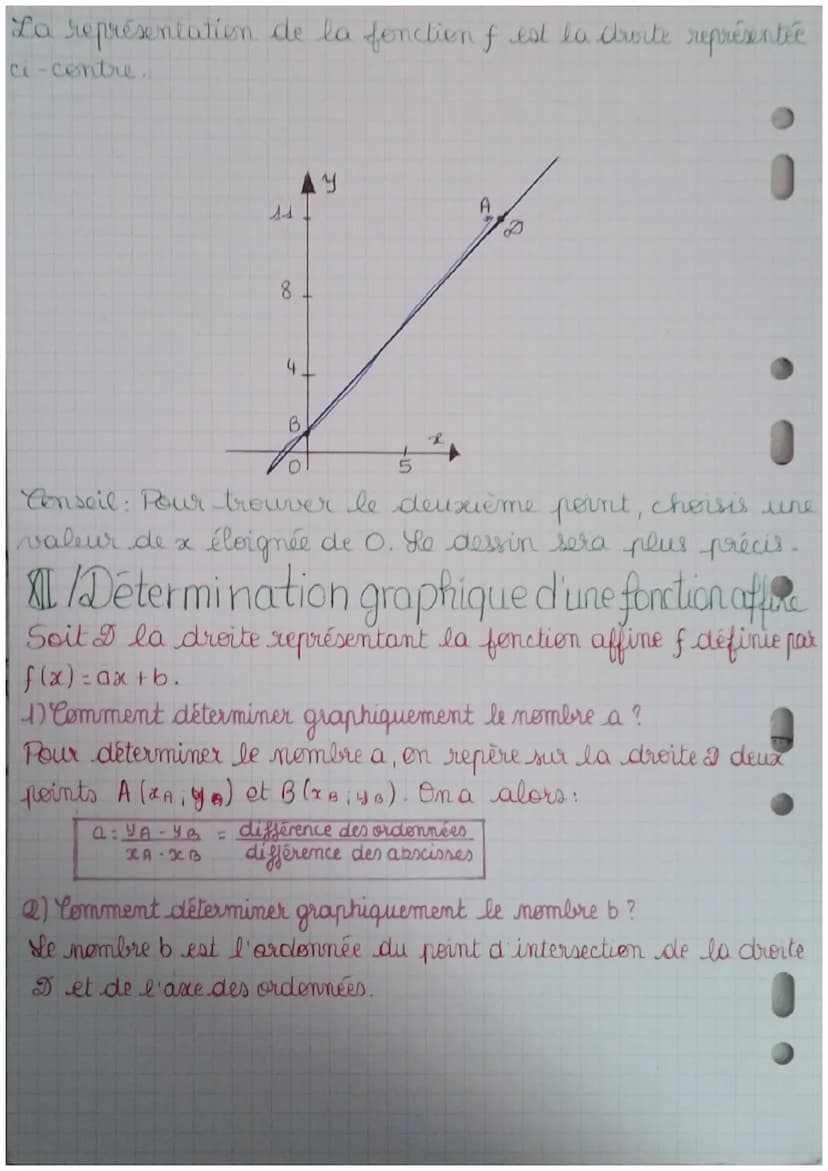 La représentation de la fonction f est la droite représentée
ci-contre.
y
11
A
D
8
4
B
x
0
5
Conseil: Pour trouver le deuxième point, choisis une
valeur de x éloignée de 0. Le dessin sera plus précis.
XII/Détermination graphique d'une fonction affine
Soit D la droite représentant la fonction affine f définie par
f(x)=ax+b.
1) Comment déterminer graphiquement le nombre a?
Pour déterminer le nombre a, on repère sur la droite D deux
points A(xA; yA) et B(xB; yB). On a alors:
a = yA - yB / xA - xB = différence des ordonnées / différence des abscisses
2) Comment déterminer graphiquement le nombre b?
Le nombre b est l'ordonnée du point d'intersection de la droite
D et de l'axe des ordonnées.